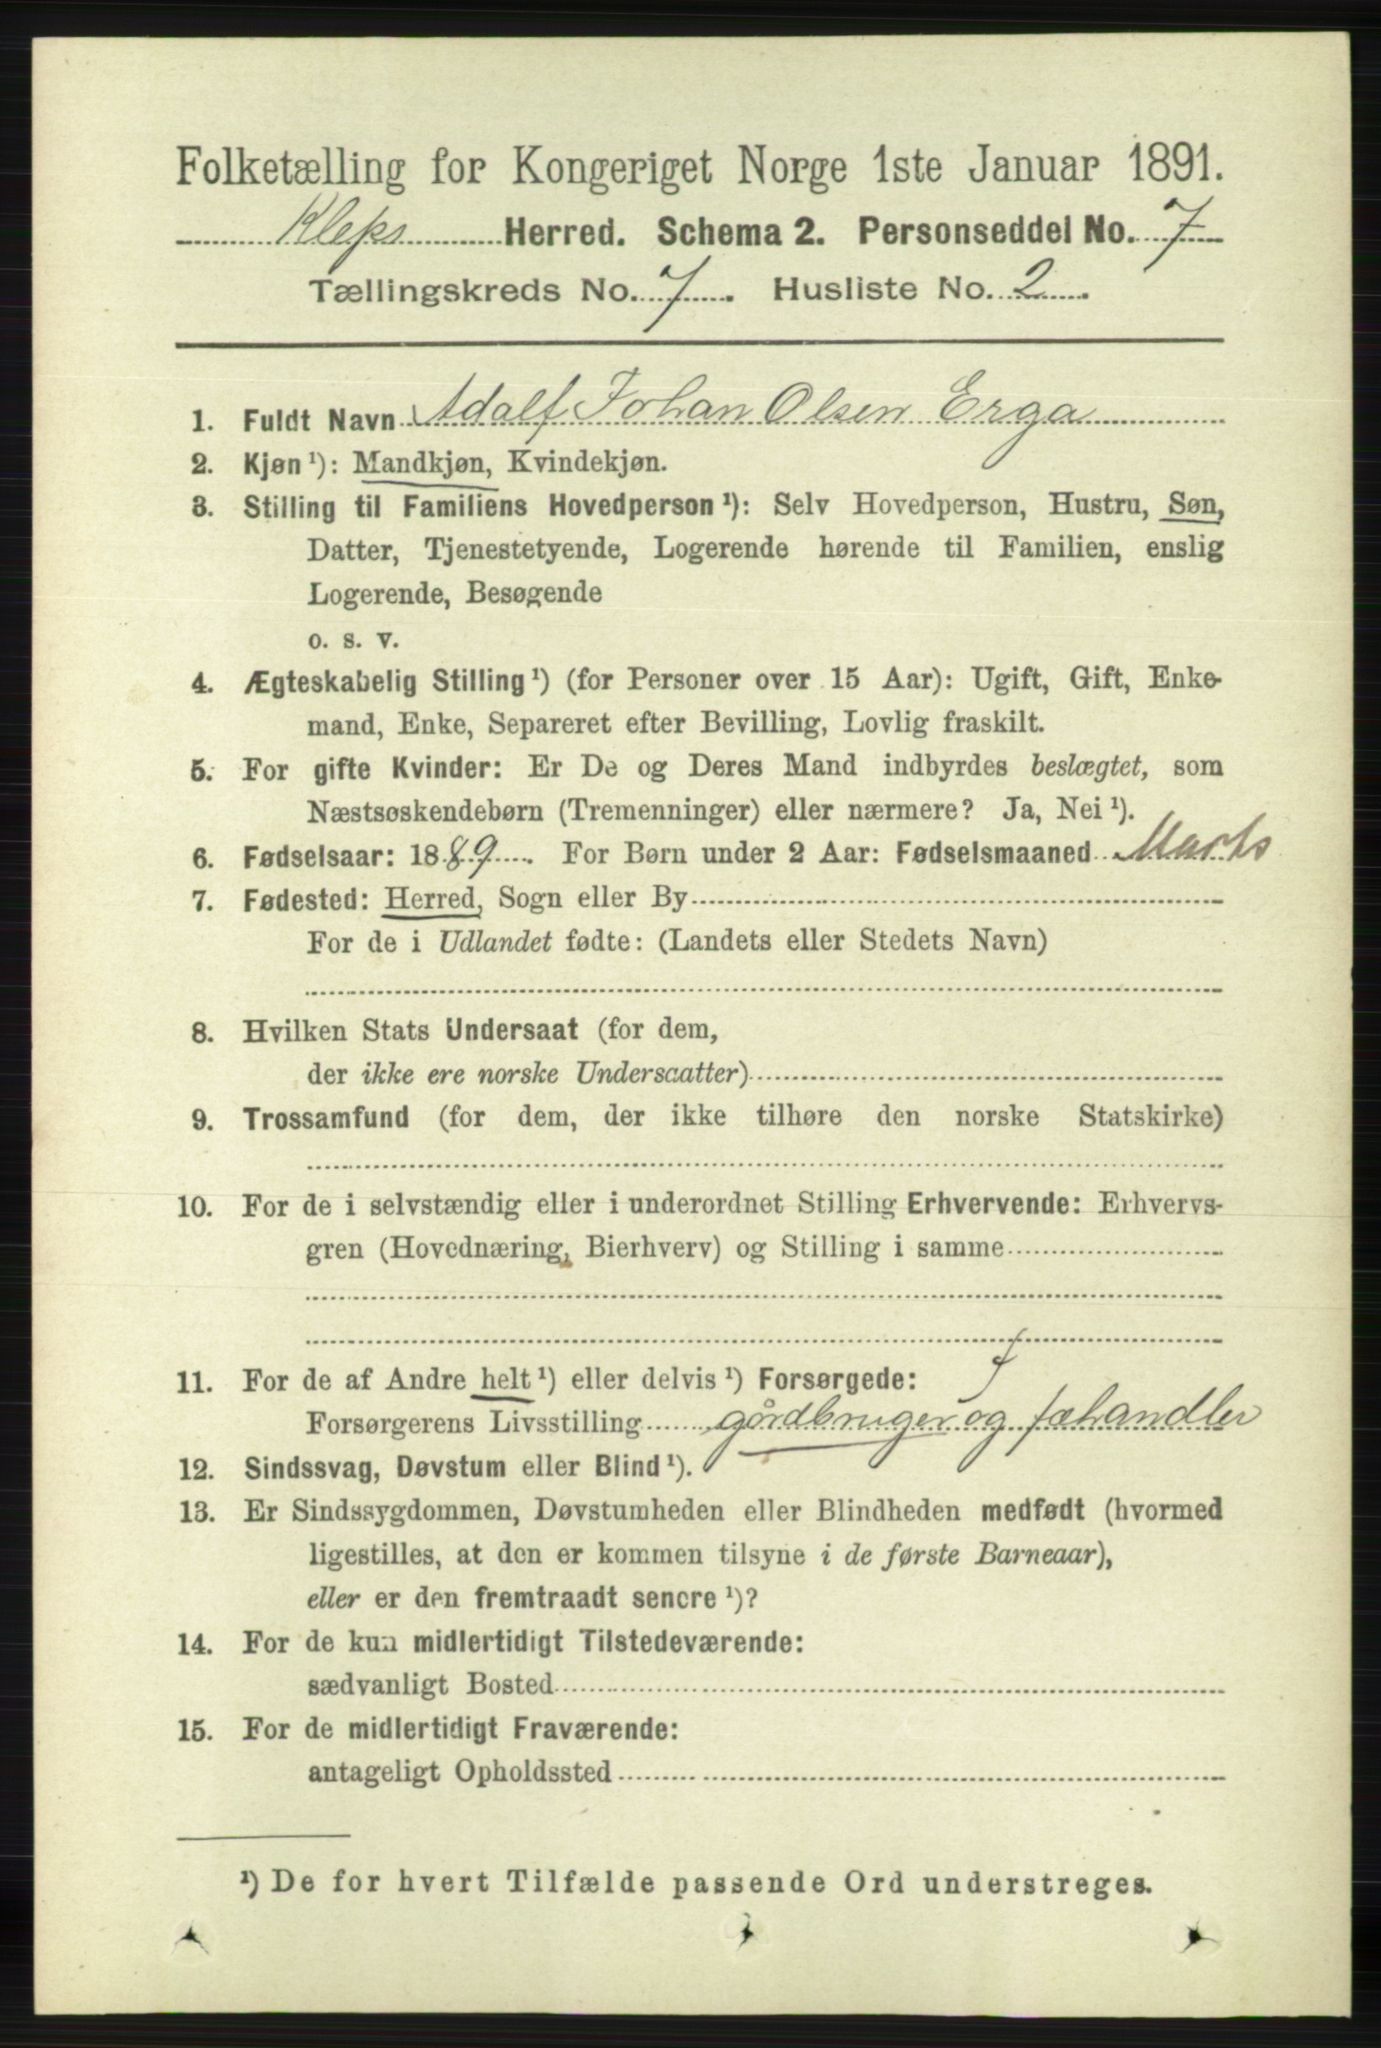 Folketælling for Kongeriget Norge 1ste Januar 1891.
Kleps Herred. Schema 2. Personseddel No. 7
Tællingskreds No. 7. Husliste No. 2.
1. Fuldt Navn Adalf Johan Olsen Erga
2. Kjøn ¹): Mandkjøn, Kvindekjøn.
3. Stilling til Familiens Hovedperson ¹): Selv Hovedperson, Hustru, Søn,
Datter, Tjenestetyende, Logerende hørende til Familien, enslig
Logerende, Besøgende
o. s. v.
4. Ægteskabelig Stilling ¹) (for Personer over 15 Aar): Ugift, Gift, Enke-
mand, Enke, Separeret efter Bevilling, Lovlig fraskilt.
5. For gifte Kvinder: Er De og Deres Mand indbyrdes beslægtet, som
Næstsøskendebørn (Tremenninger) eller nærmere? Ja, Nei ¹).
6. Fødselsaar: 1889. For Børn under 2 Aar: Fødselsmaaned Marts
7. Fødested: Herred, Sogn eller By
For de i Udlandet fødte: (Landets eller Stedets Navn)
8. Hvilken Stats Undersaat (for dem,
der ikke ere norske Undersaatter)
9. Trossamfund (for dem, der ikke tilhøre den norske Statskirke)
10. For de i selvstændig eller i underordnet Stilling Erhvervende: Erhvervs-
gren (Hovednæring, Bierhverv) og Stilling i samme
11. For de af Andre helt ¹) eller delvis ¹) Forsørgede: f
Forsørgerens Livsstilling gårdbruger og fæhandler
12. Sindssvag, Døvstum eller Blind ¹).
13. Er Sindssygdommen, Døvstumheden eller Blindheden medfødt (hvormed
ligestilles, at den er kommen tilsyne i de første Barneaar),
eller er den fremtraadt senere ¹)?
14. For de kun midlertidigt Tilstedeværende:
sædvanligt Bosted
15. For de midlertidigt Fraværende:
antageligt Opholdssted
¹) De for hvert Tilfælde passende Ord understreges.